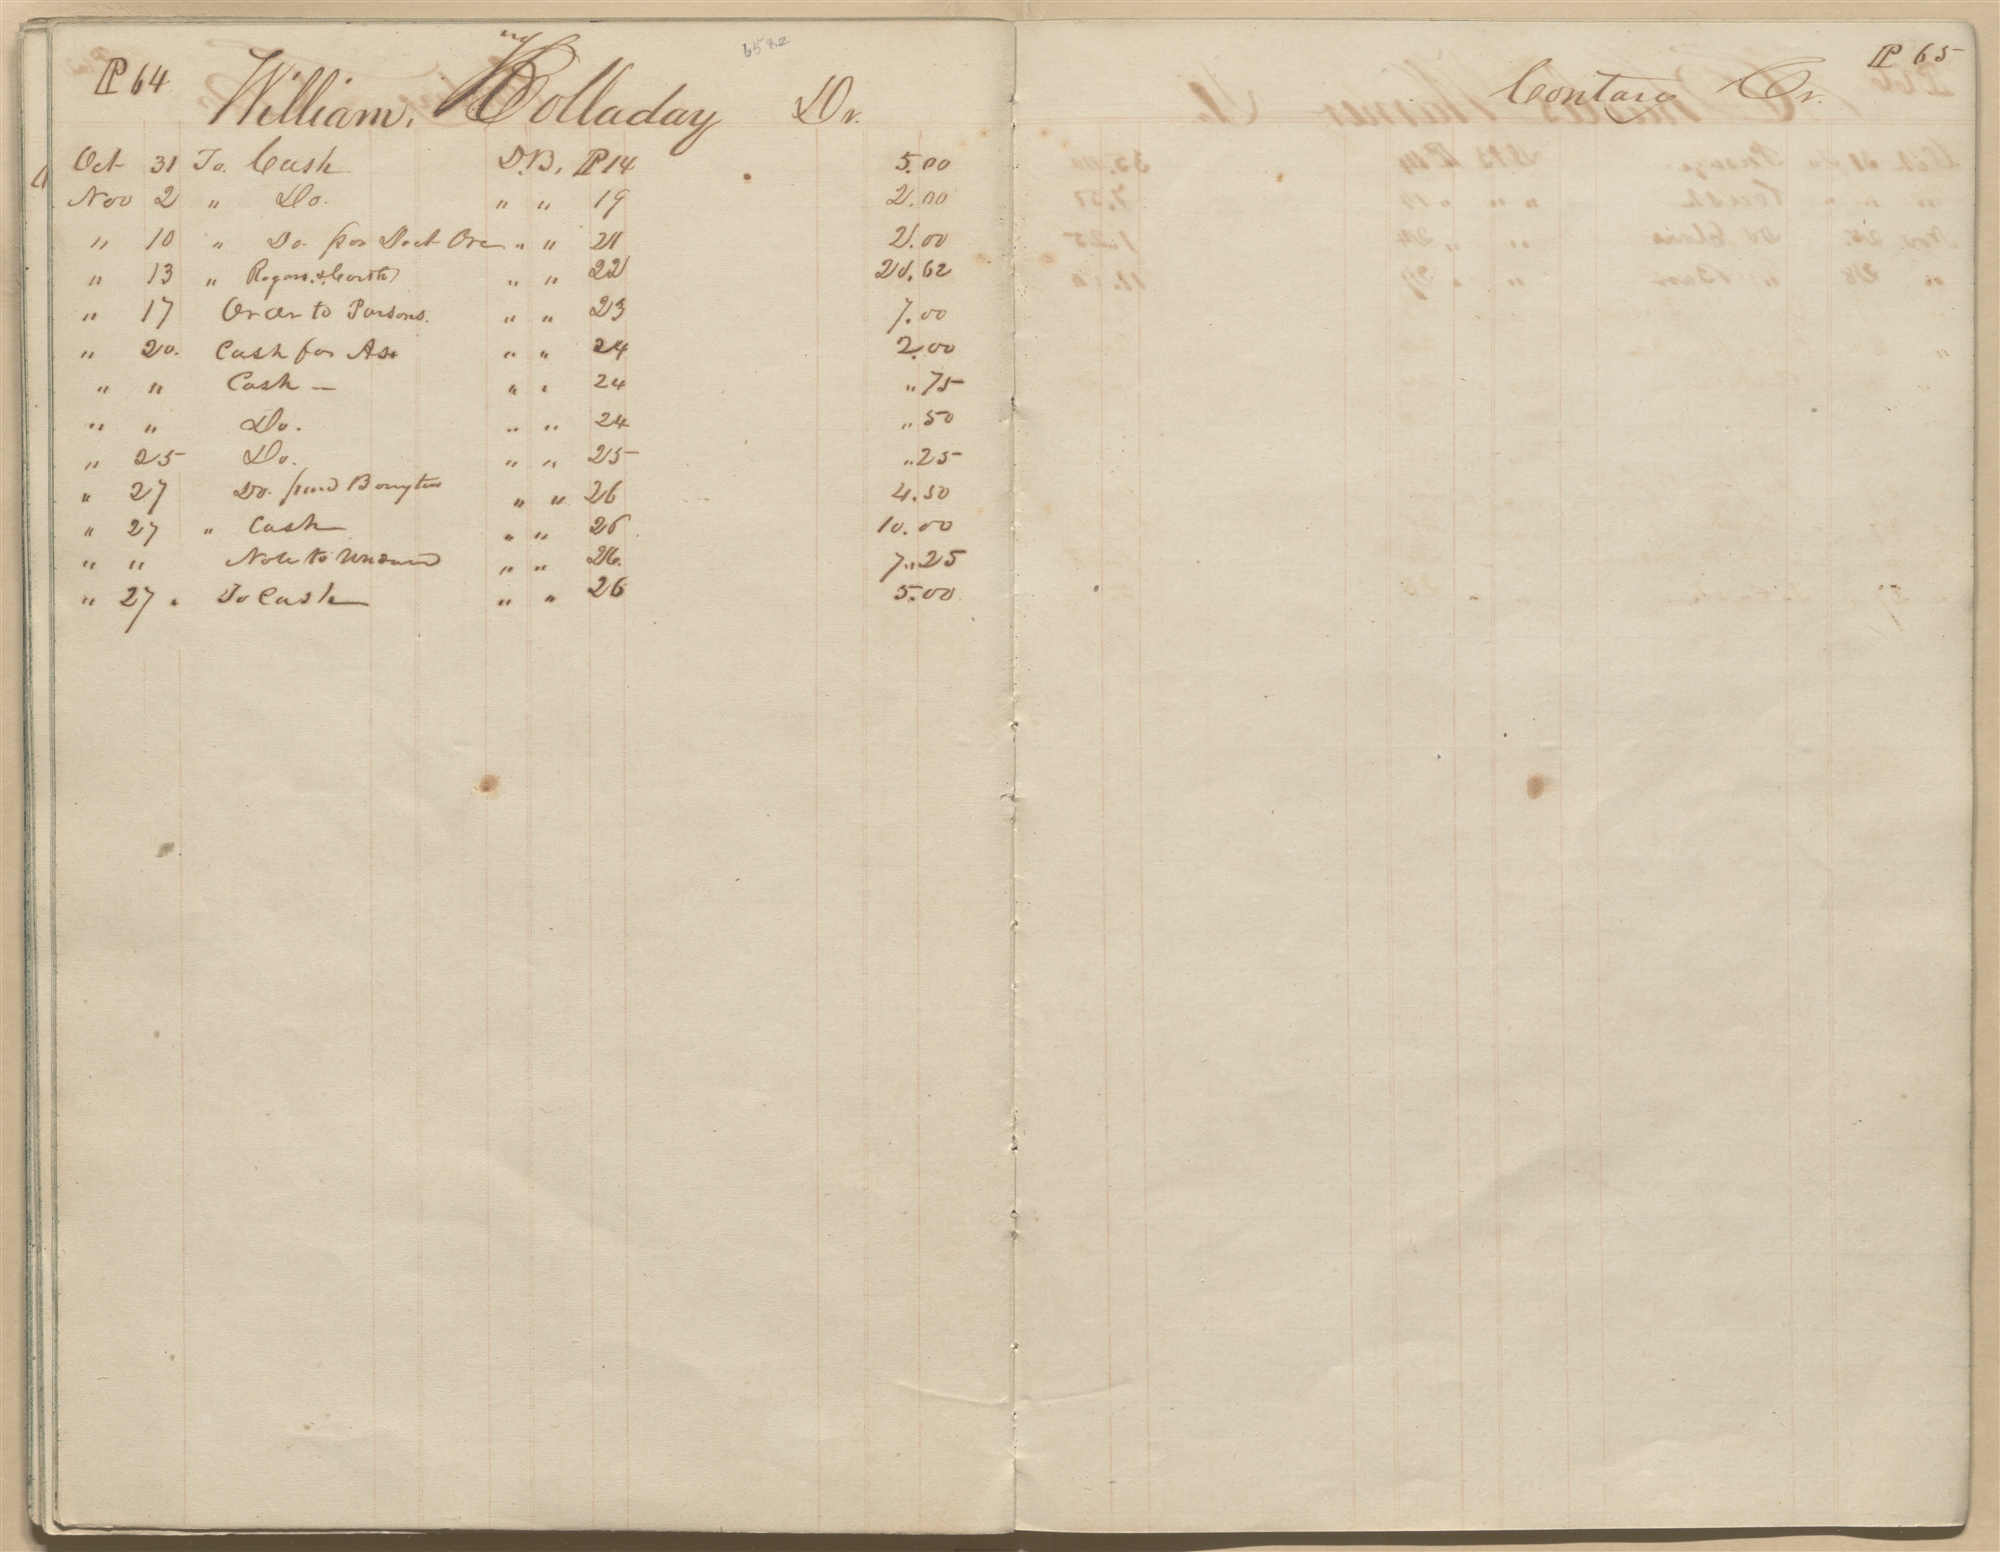 P 64 William Holladay Dr.
6582
Oct 31 To. Cash D.B. P 14 5.00
Nov 2 " Do. " " 19 2.00
" 10 " Do. for Doct Ore " " 21 2.00
" 13 " Rogers & Cash " " 22 21.62
" 17 Order to Parsons. " " 23 7.00
" 20. Cash for Ase " " 24 2.00
" " Cash — " " 24 " 75
" " Do. " " 24 " 50
" 25 Do. " " 25 " 25
" 27 Do. paid " " 26 4.50
" 27 " Cash " " 26 10.00
" " Note to " " 26. 7.25
" 27 " To Cash " " 26 5.00
P 65
Contary Cr.